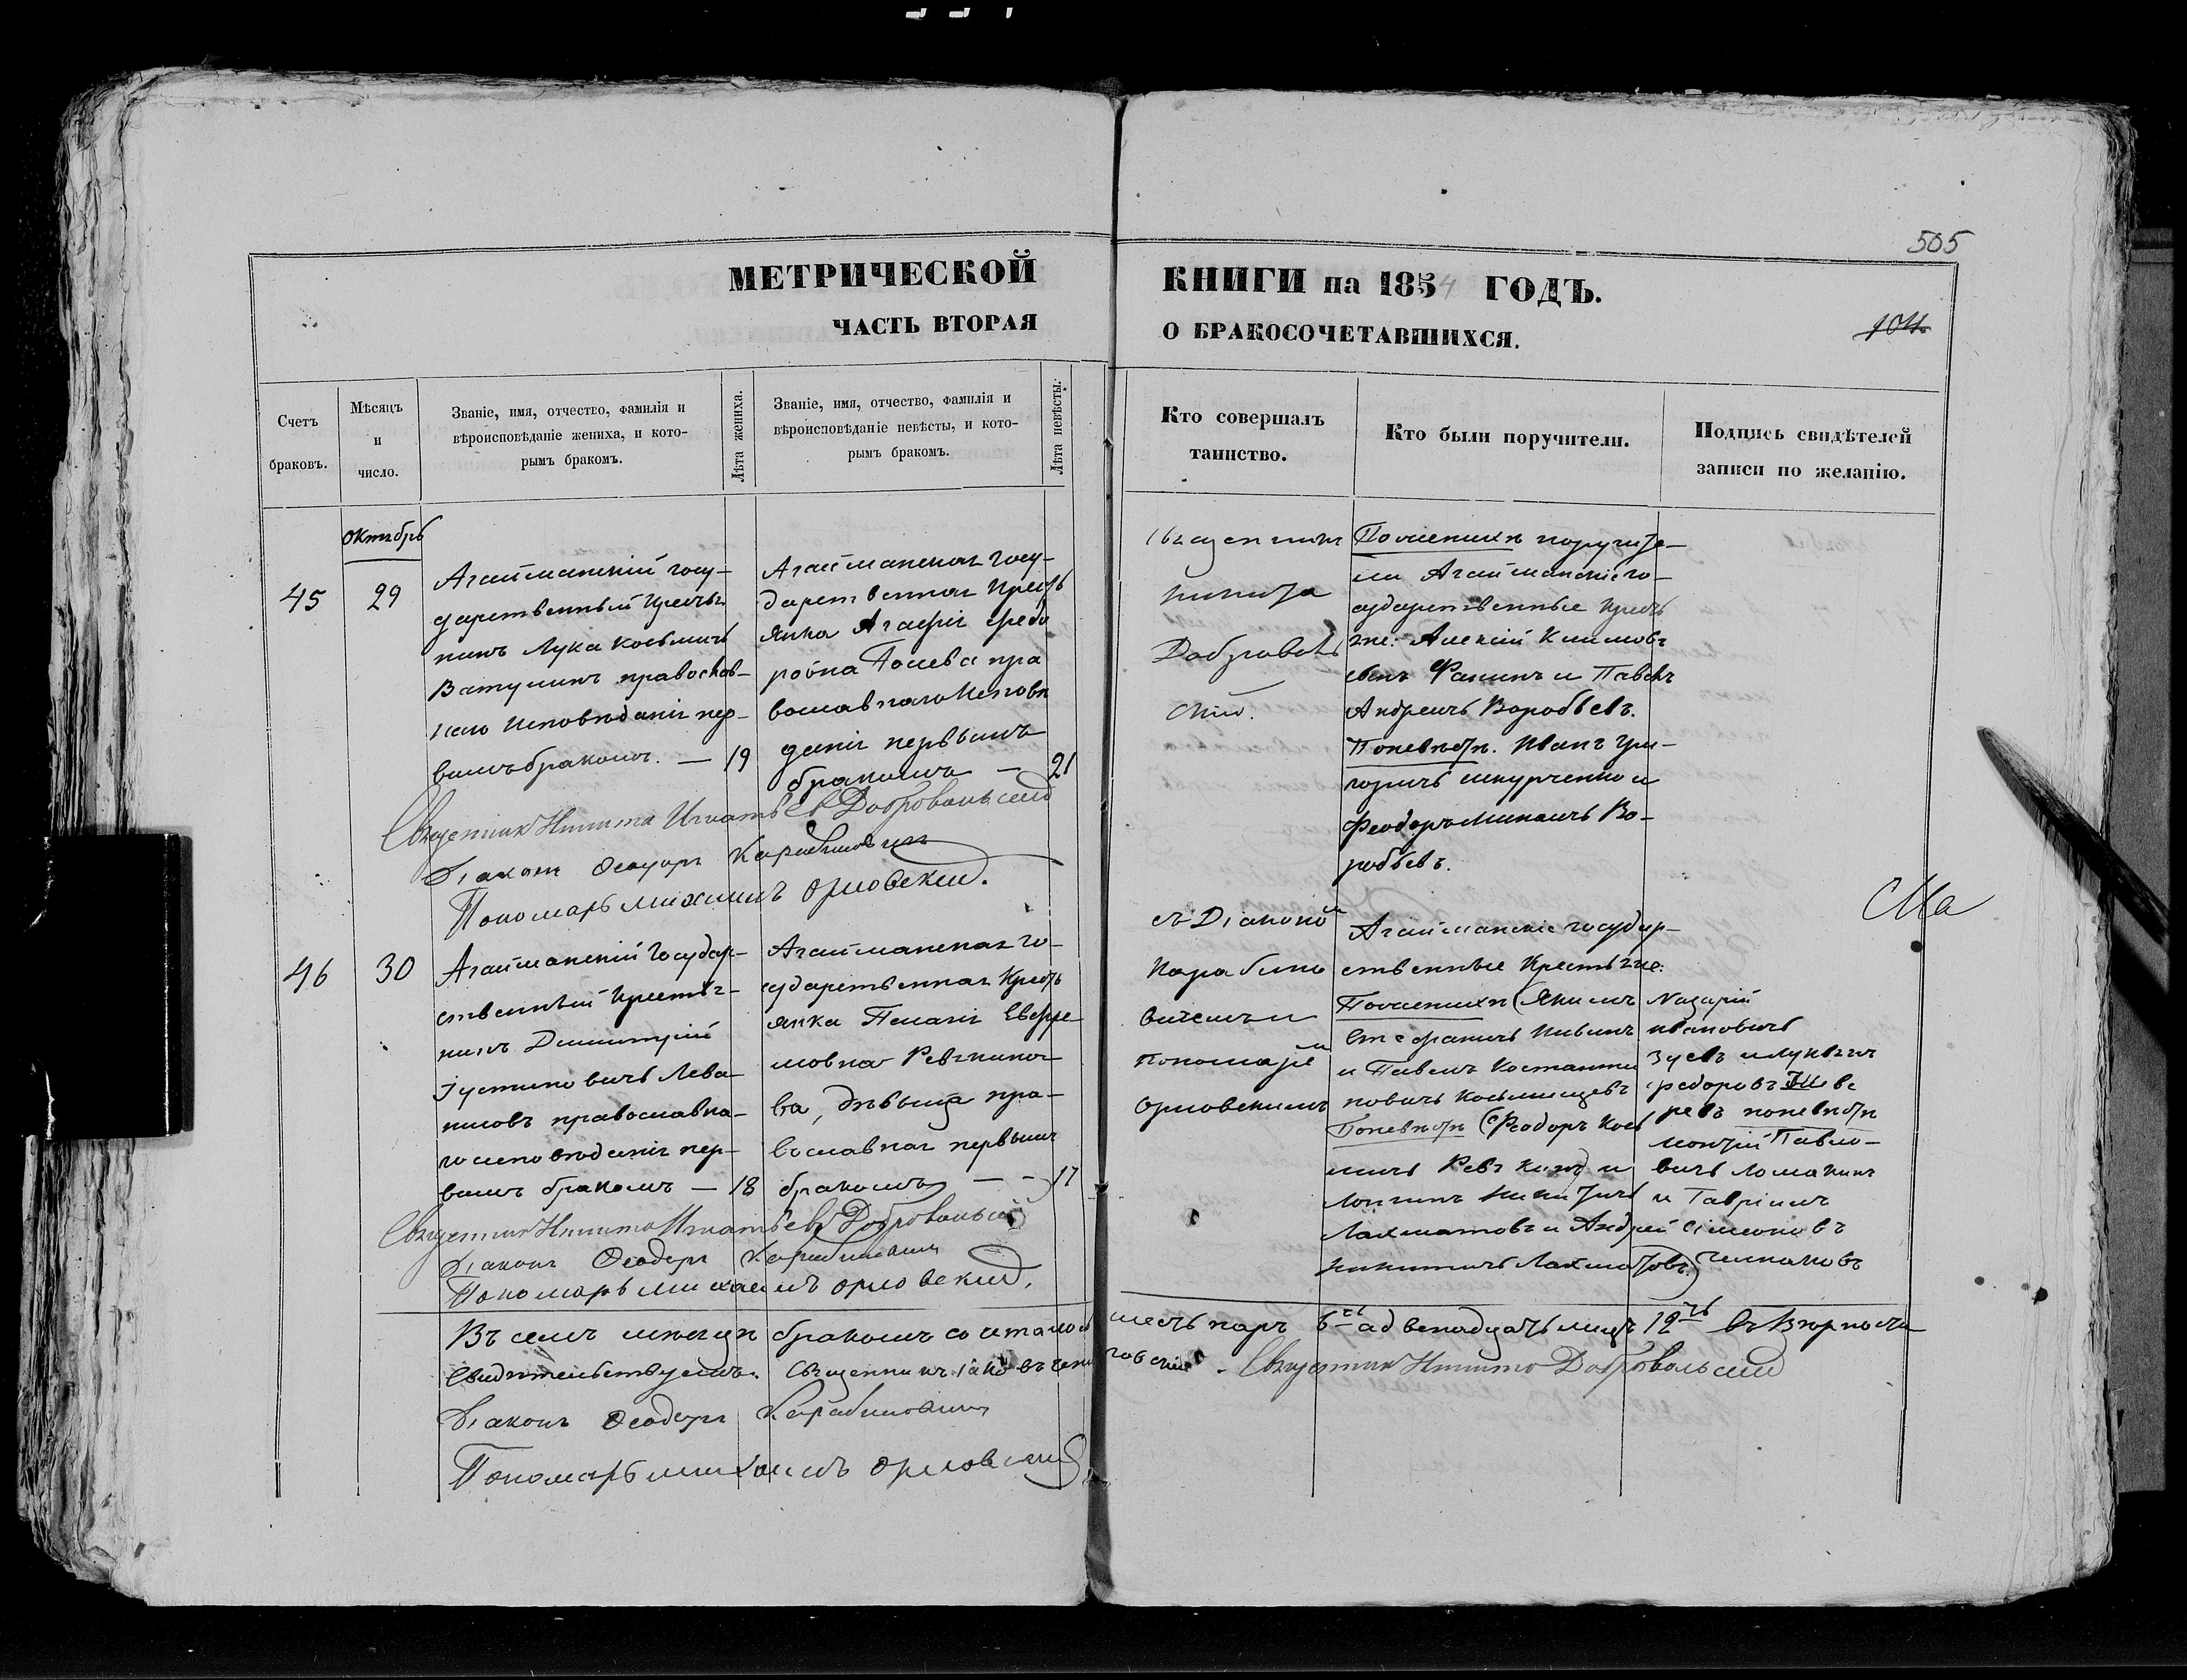 505
МЕТРИЧЕСКОЙ КНИГИ на 1854 ГОДЪ.
ЧАСТЬ ВТОРАЯ О БРАКОСОЧЕТАВШИХСЯ.
104
Счетъ браковъ.
Мѣсяцъ и число.
Званіе, имя, отчество, фамилія и
вѣроисповѣданіе жениха, и кото-
рымъ бракомъ.
Лѣта жениха.
Званіе, имя, отчество, фамилія и
вѣроисповѣданіе невѣсты, и кото-
рымъ бракомъ.
Лѣта невѣсты.
Кто совершалъ
таинство.
Кто были поручители.
Подпись свидѣтелей
записи по желанію.
Октябрь
45
29
Агайманскій госу-
дарственный Крестья
нинъ Лука Косьмичъ
Ватулинъ православ-
наго Исповѣданія пер-
вымъ бракомъ. —
19
Агайманская госу-
дарственная Кресть
янка Агафія Федо
ровна пра
вославнаго Исповѣ
данія первымъ
бракомъ —
21
Священникъ
Никита
Добровол
скій.
По женихѣ поручите-
ли Агайманскіе го-
сударственные Кресть
яне: Алексій Климов
Фанинъ и Павелъ
Андреичъ Воробьевъ.
По невѣстѣ. Иванъ Гри-
горичъ Шкурченко и
Феодоръ Минаичъ Во-
робьевъ.
Священник Никита Игнатьев Добровольскій
Діаконъ Феодоръ Карабиновичъ
Пономарь Михаилъ Орловскій.
46
30
Агайманскій Государ-
ственный Крестья-
нинъ Димитрій
Іустиновичъ Лева-
шовъ православна-
го исповѣданія пер-
вымъ бракомъ —
18
Агайманская го-
сударственная Кресть
янка Пелагія Евфре
мовна Ревякино
ва, дѣвица пра-
вославная первымъ
бракомъ — -
17
съ Діаконом
Караби
вичемъ и
пономарем
Орловскимъ
Агайманскіе государ-
ственные Крестьяне.
По женихѣ (Якимъ
Стефаничъ Пивинъ
и Павелъ Костанти
новичъ
По невѣстѣ (Феодоръ Кось
мичъ Ревякинъ и
Логинъ Никитичъ
Лахматовъ и Андрей
Никитичъ Лахматовъ)
Назарій
Ивановичъ
Зуевъ и Лукьянъ
Федоровъ
по невѣстѣ
Павло-
вичъ Ломакинъ
и Гавріилъ
Сімеоновъ
Священник Никита Игнатьевъ Добровольскій
Діаконъ Феодоръ Карабиновичъ
Пономарь Михаилъ Орловскій.
Въ семъ мѣсяцѣ бракомъ сочеталось шесть паръ 6ть а двенадцать лицъ 12ть въ вѣрности
Свидѣтельствуемъ. Священникъ Іаковъ Священник Никита Добровольскій
Діаконъ Феодоръ Карабиновичъ
Пономарь Михаилъ Орловскій